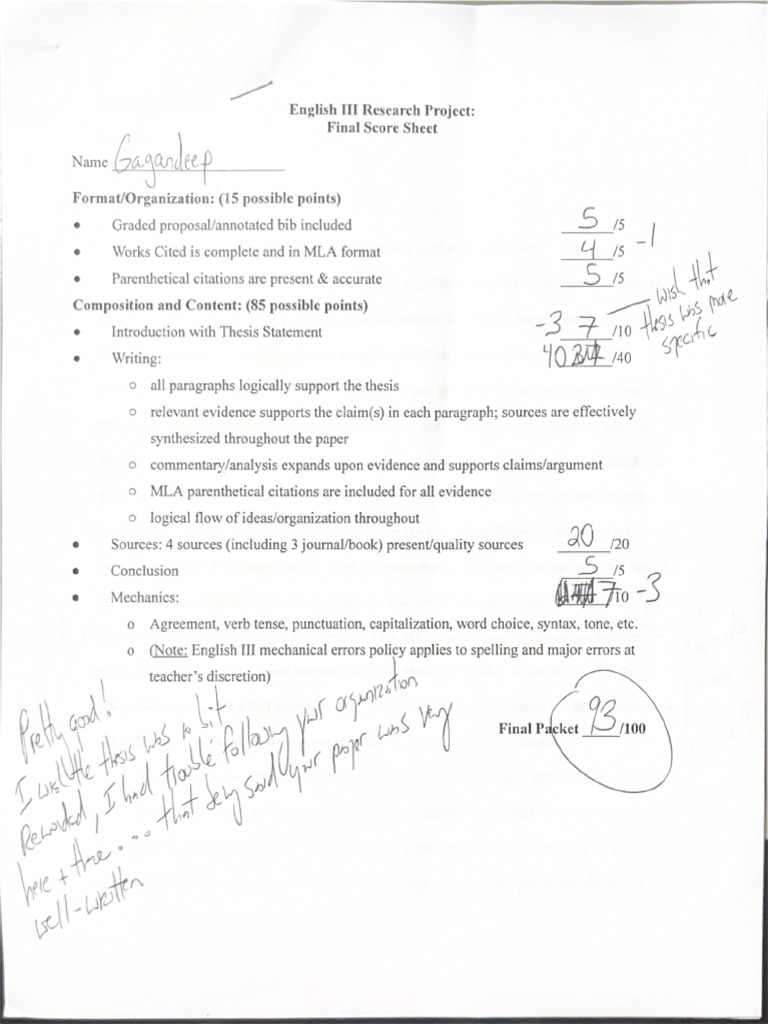 English III Research Project:
Final Score Sheet
Name Gagandeep
Format/Organization: (15 possible points)
• Graded proposal/annotated bib included 5 /5
• Works Cited is complete and in MLA format 4 /5 -1
• Parenthetical citations are present & accurate 5 /5
wish that
thesis was more
specific
Composition and Content: (85 possible points)
• Introduction with Thesis Statement -3 7 /10
• Writing: 40 /40
o all paragraphs logically support the thesis
o relevant evidence supports the claim(s) in each paragraph; sources are effectively
synthesized throughout the paper
o commentary/analysis expands upon evidence and supports claims/argument
o MLA parenthetical citations are included for all evidence
o logical flow of ideas/organization throughout
• Sources: 4 sources (including 3 journal/book) present/quality sources 20 /20
• Conclusion 5 /5
• Mechanics: 7 /10 -3
o Agreement, verb tense, punctuation, capitalization, word choice, syntax, tone, etc.
o (Note: English III mechanical errors policy applies to spelling and major errors at
teacher's discretion)
Final Packet 93 /100
Pretty good!
I wish the thesis was a bit
Reworded, I had trouble following your organization
here + there.... that being said your paper was very
well-written